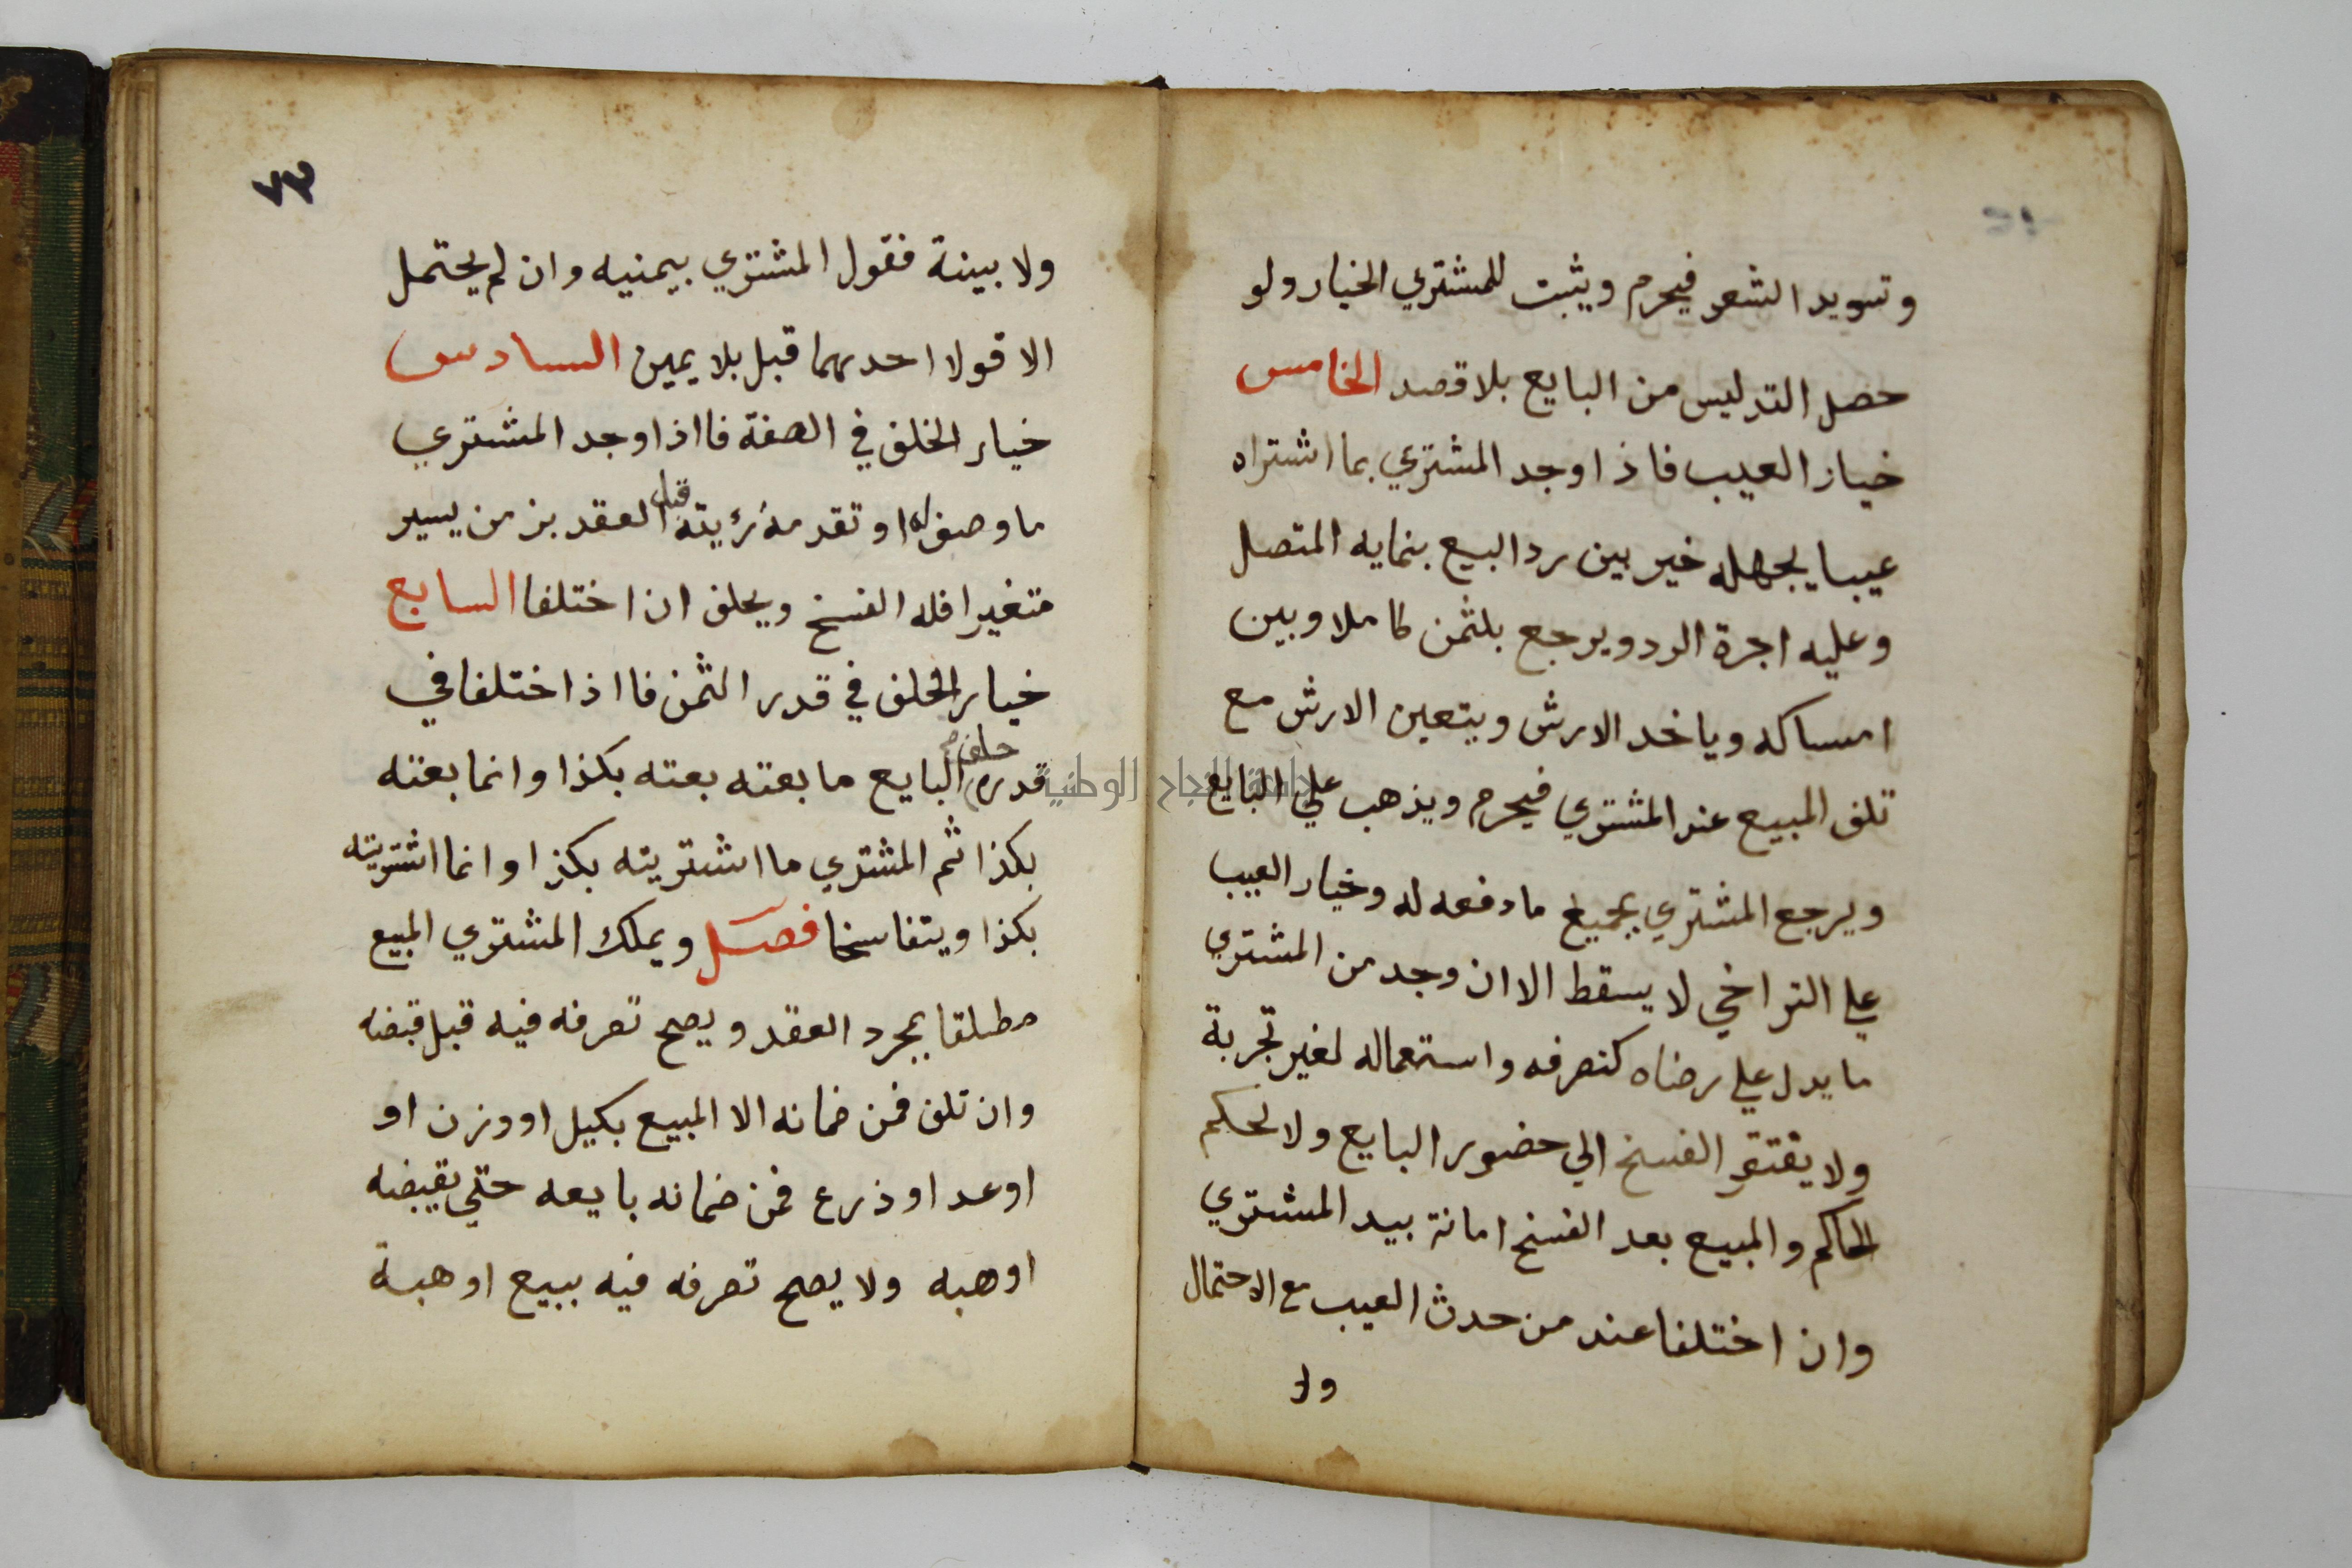 وتسويد الشعر فيحرم ويثبت للمشتري الخيار ولو
حصل التدليس من البايع بلا قصد الخامس
خيار العيب فاذا وجد المشتري بما اشتراه
عيبا يجهله خير بين رد البيع بنمايه المتصل
وعليه اجرة الرد ويرجع بلثمن كاملا وبين
امساكه وياخد الارش ويتعين الارش مع
تلف المبيع عند المشتري فيحرم ويذهب علي البايع
ويرجع المشتري بجميع ما دفعه له وخيار العيب
علي التراخي لا يسقط الا ان وجد من المشتري
ما يدل علي رضاه كتصرفه واستعماله لغير تجربة
ولا يفتقر الفسخ الي حضور البايع ولا لحكم
الحاكم والمبيع بعد الفسخ امانة بيد المشتري
وان اختلفا عند من حدث العيب مع الاحتمال
ولا
٧٣
ولا بينة فقول المشتري بيمنيه وان لم يحتمل
الا قولا احدهما قبل بلا يمين السادس
خيار الخلف في الصفة فااذا وجد المشتري
ما وصف له او تقدمة رئيته قبل العقد بزمن يسير
متغيرا فله الفسخ ويحلف ان اختلفا السابع
خيار الخلف في قدر الثمن فااذا ختلفا في
قدره حلف البايع ما بعته بعته بكذا وانما بعته
بكذا ثم المشتري ما اشتريته بكذا وانما اشتريته
بكذا ويتفاسخا فصل ويملك المشتري المبيع
مطلقا بمجرد العقد ويصح تصرفه فيه قبل قبضه
وان تلف فمن ضمانه الا المبيع بكيل او وزن او
او عد او ذرع فمن ضمانه بايعه حتي يقبضه
او هبه ولا يصح تصرفه فيه ببيع او هبة
جامعة النجاح الوطنية